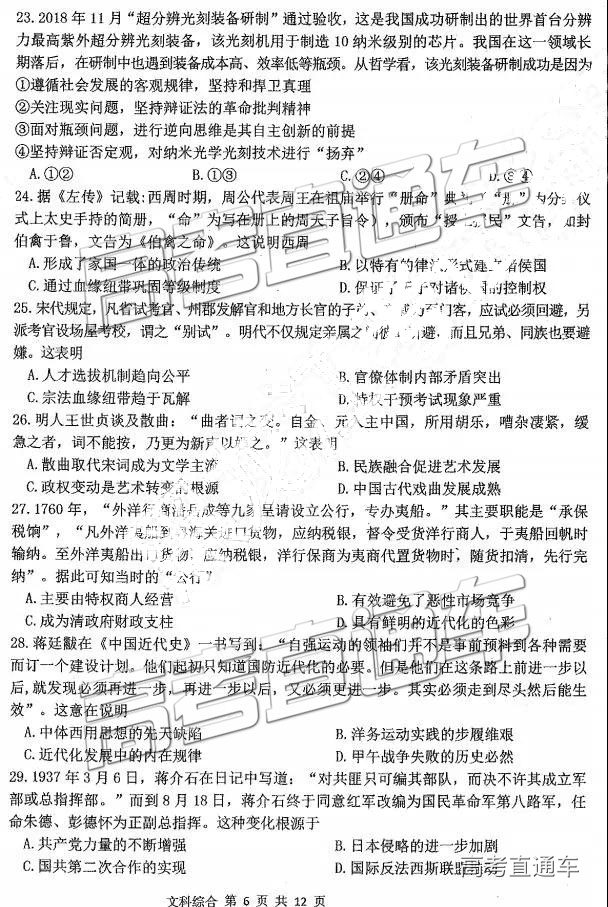 23.2018 年 11 月“超分辨光刻装备研制”通过验收，这是我国成功研制出的世界首台分辨
力最高紫外超分辨光刻装备，该光刻机用于制造 10 纳米级别的芯片。我国在这一领域长
期落后，在研制中也遇到装备成本高、效率低等瓶颈。从哲学看，该光刻装备研制成功是因为
①遵循社会发展的客观规律，坚持和捍卫真理
②关注现实问题，坚持辩证法的革命批判精神
③面对瓶颈问题，进行逆向思维是其自主创新的前提
④坚持辩证否定观，对纳米光学光刻技术进行“扬弃”
A.①② B.①③ C.②④ D.③④
24.据《左传》记载：西周时期，周公代表周王在祖庙举行“册命”典
式上太史手持的简册，“命”为写在册上的周天子旨令），颁布“授民”文告，如封
伯禽于鲁，文告为《伯禽之命》。这说明西周
A.形成了家国一体的政治传统 B.以特有的律形式建立诸侯国
C.通过血缘纽带巩固等级制度 D.保证了天子对诸侯国的控制权
25.宋代规定，凡省试考官、州郡发解官和地方长官的子弟、门客，应试必须回避，另
派考官设场屋考校，谓之“别试”。明代不仅规定亲属之间避，而且兄弟、同族也要避
嫌。这表明
A.人才选拔机制趋向公平 B.官僚体制内部矛盾突出
C.宗法血缘纽带趋于瓦解 D.特权干预考试现象严重
26.明人王世贞谈及散曲：“曲者词之变。自金、元入主中国，所用胡乐，嘈杂凄紧，缓
急之者，词不能按，乃更为新声以媚之。”这表明
A.散曲取代宋词成为文学主流 B.民族融合促进艺术发展
C.政权变动是艺术转变的根源 D.中国古代戏曲发展成熟
27.1760 年，“外洋行潘振成等九家呈请设立公行，专办夷船。”其主要职能是“承保
税饷”，“凡外洋夷船到粤海关进口货物，应纳税银，督令受货洋行商人，于夷船回帆时
输纳。至外洋夷船出口货物，应纳税银，洋行保商为夷商代置货物时，随货扣清，先行完
纳”。据此可知当时的“公行”
A.主要由特权商人经营 B.有效避免了恶性市场竞争
C.成为清政府财政支柱 D.具有鲜明的近代化的色彩
28.蒋廷黻在《中国近代史》一书写到：“自强运动的领袖们并不是事前预料到各种需要
而订一个建设计划。他们起初只知道国防近代化的必要。但是他们在这条路上前进一步以
后，就发现必须再进一步，再进一步以后，又必须更进一步。其实必须走到尽头然后能生
效”。这意在说明
A.中体西用思想的先天缺陷 B.洋务运动实践的步履维艰
C.近代化发展中的内在规律 D.甲午战争失败的历史必然
29.1937 年 3 月 6 日，蒋介石在日记中写道：“对共匪只可编其部队，而决不许其成立军
部或总指挥部。”而到 8 月 18 日，蒋介石终于同意红军改编为国民革命军第八路军，任
命朱德、彭德怀为正副总指挥。这种变化根源于
A.共产党力量的不断增强 B.日本侵略的进一步加剧
C.国共第二次合作的实现 D.国际反法西斯联盟
高考直通车
文科综合 第 6 页 共 12 页